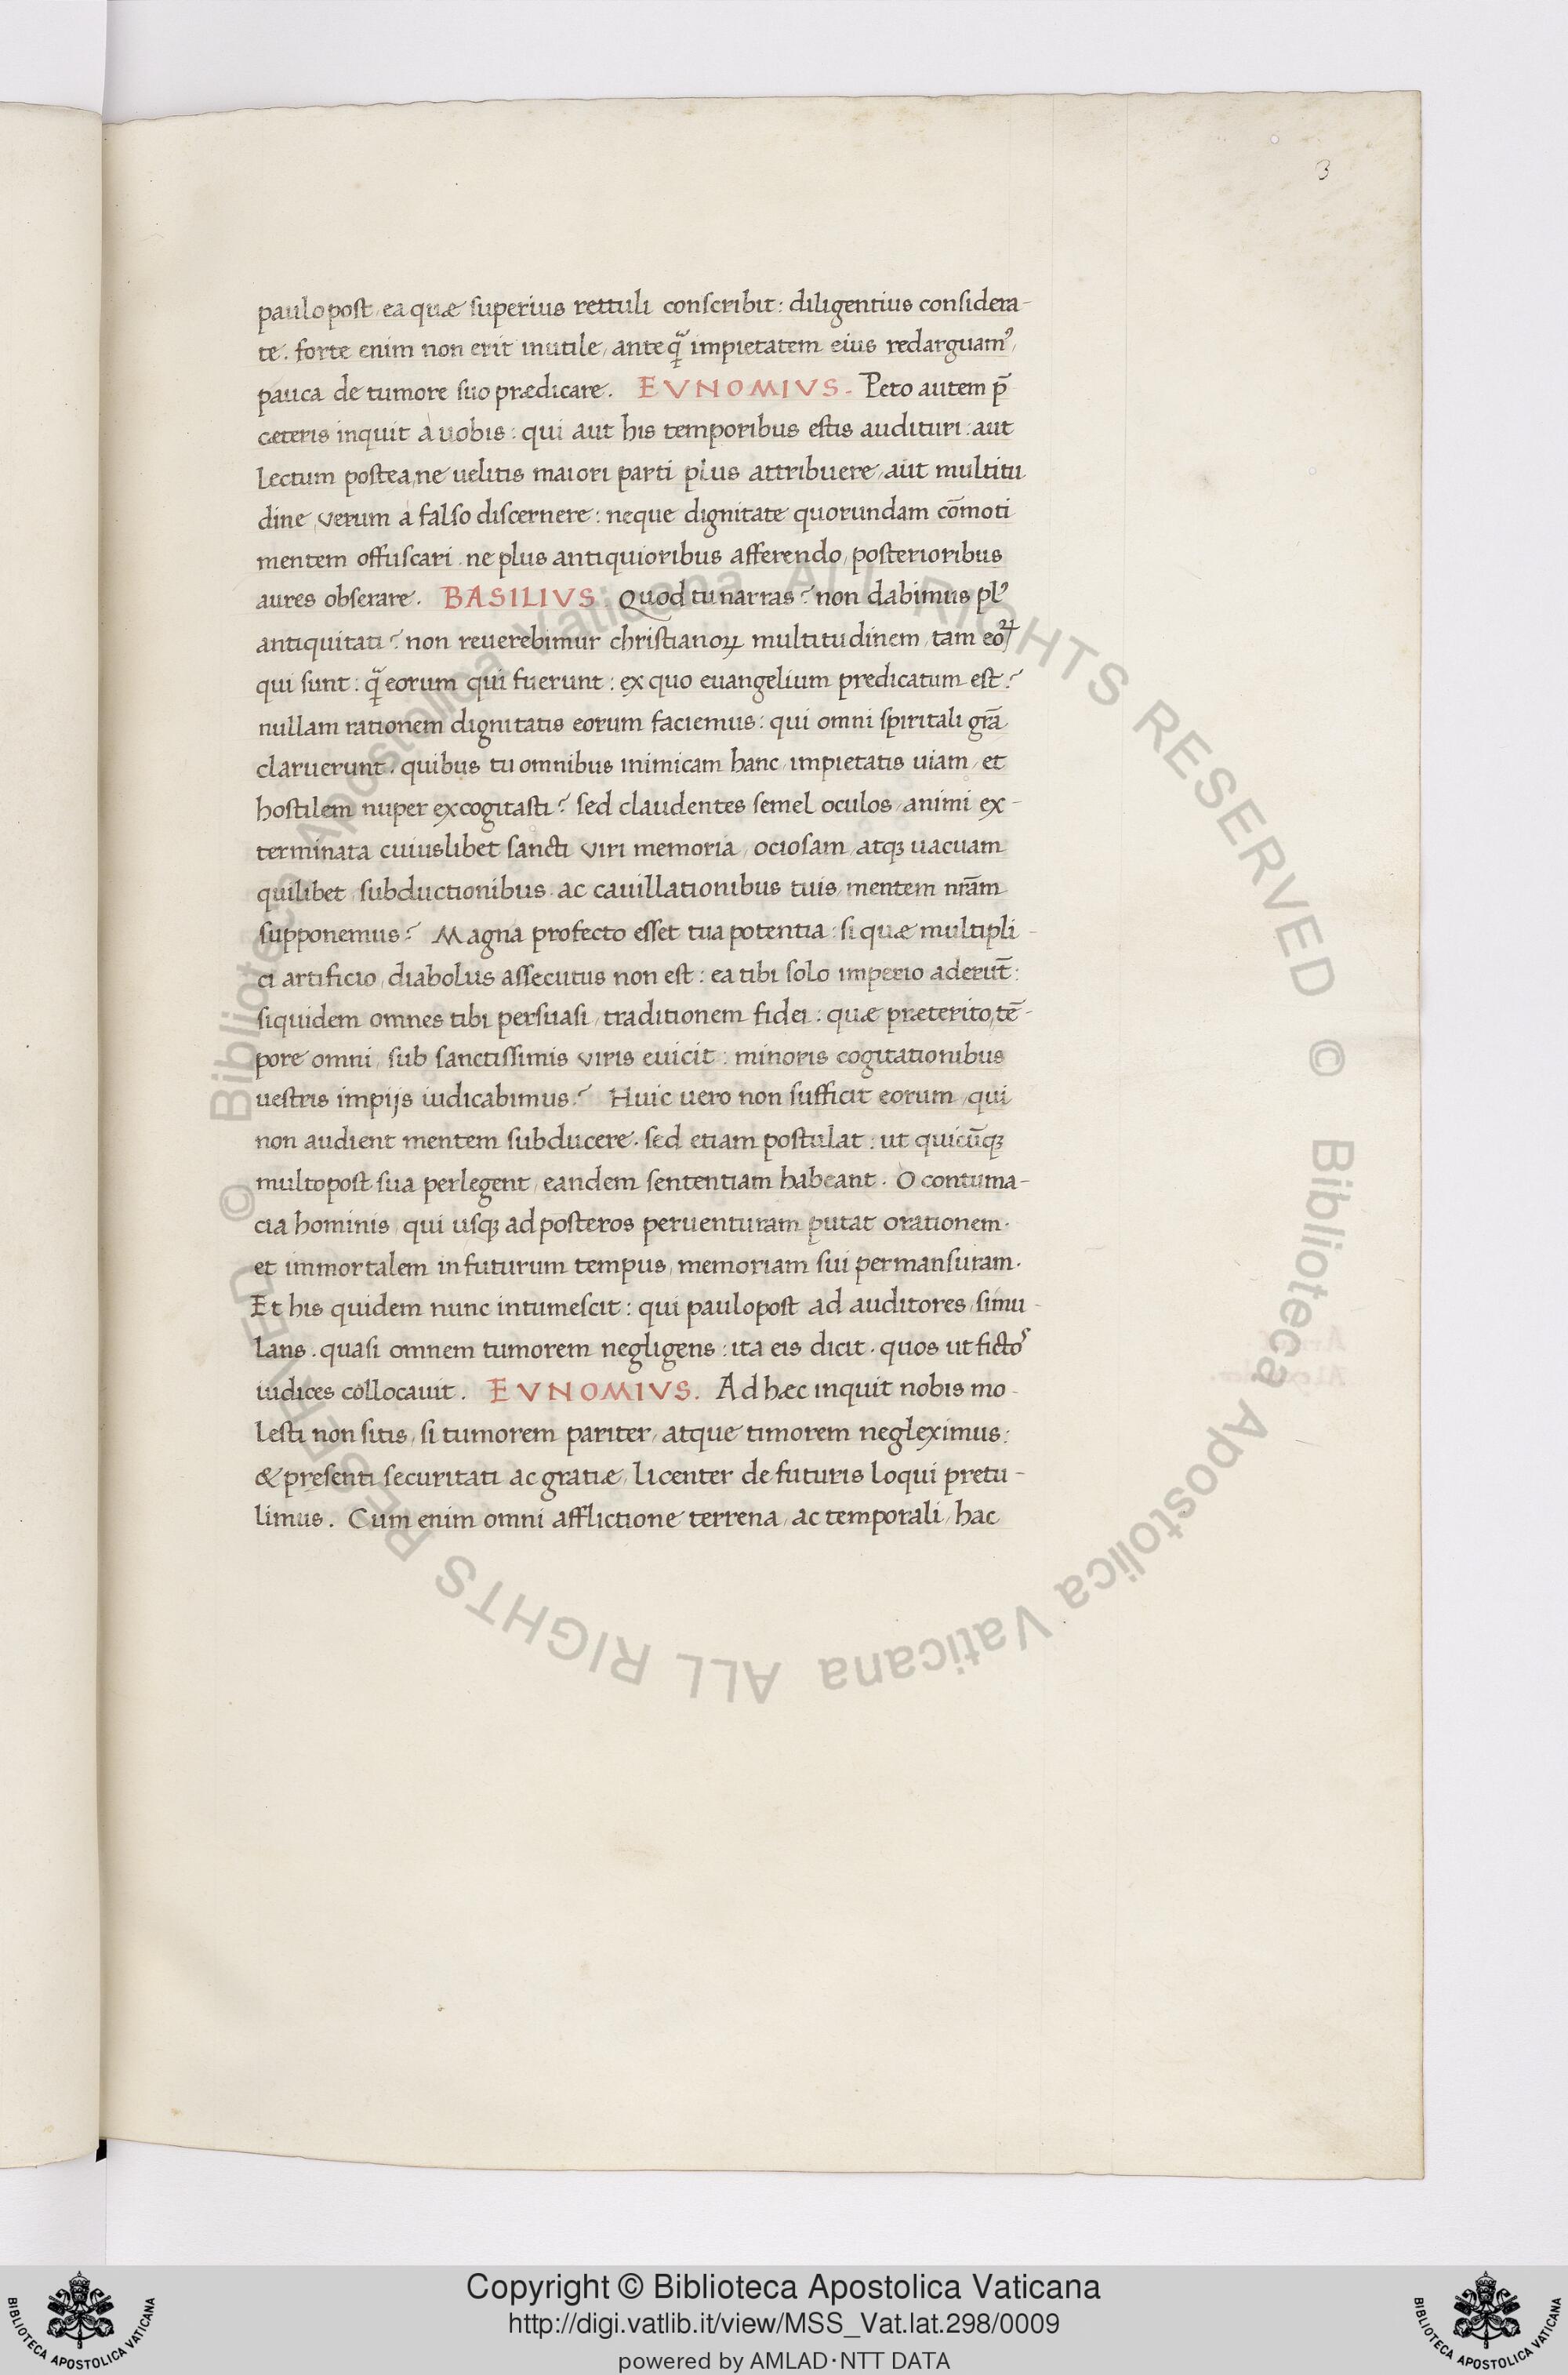 3
paulopost, ea quæ superius rettuli conscribit: diligentius considera-
te. forte enim non erit inutile, anteq̃ impietatem eius redarguamꝰ,
pauca de tumore suo prædicare. EVNOMIVS. Peto autem p̄
cæteris inquit à uobis: qui aut his temporibus estis audituri: aut
lectum postea, ne uelitis maiori parti plus attribuere, aut multitu
dine, verum à falso discernere: neque dignitate quorundam cōmoti
mentem offuscari. ne plus antiquioribus afferendo, posterioribus
aures obserare. BASILIVS. Quod tu narras? non dabimus plꝰ
antiquitati? non reuerebimur christianoꝝ multitudinem, tam eoꝝ
qui sunt: q̃ eorum qui fuerunt: ex quo euangelium predicatum est?
nullam rationem dignitatis eorum faciemus: qui omni spiritali grā
claruerunt. quibus tu omnibus inimicam hanc, impietatis uiam, et
hostilem nuper excogitasti? sed claudentes semel oculos, animi ex-
terminata cuiuslibet sancti viri memoria, ociosam, atqꝫ uacuam
quilibet, subductionibus. ac cauillationibus tuis, mentem nrām
supponemus? Magna profecto esset tua potentia: si quæ multipli-
ci artificio, diabolus assecutus non est: ea tibi solo imperio aderūt:
siquidem omnes tibi persuasi, traditionem fidei: quæ præterito, tē-
pore omni, sub sanctissimis viris euicit: minoris cogitationibus
uestris impijs iudicabimus? Huic uero non sufficit eorum, qui
non audient mentem subducere. sed etiam postulat: ut quicūqꝫ
multopost sua perlegent, eandem sententiam habeant. O contuma-
cia hominis, qui usqꝫ ad posteros peruenturam putat orationem.
et immortalem in futurum tempus, memoriam sui permansuram.
Et his quidem nunc intumescit: qui paulopost ad auditores, simu-
lans. quasi omnem tumorem negligens: ita eis dicit. quos ut fictos
iudices collocauit. EVNOMIVS. Ad hæc inquit nobis mo-
lesti non sitis, si tumorem pariter, atque timorem negleximus:
& presenti securitati ac gratiæ, licenter de futuris loqui pretu-
limus. Cum enim omni afflictione terrena, ac temporali, hac
© Biblioteca Apostolica Vaticana ALL RIGHTS RESERVED © Biblioteca Apostolica Vaticana ALL RIGHTS RESERVED
Copyright © Biblioteca Apostolica Vaticana
http://digi.vatlib.it/view/MSS_Vat.lat.298/0009
powered by AMLAD·NTT DATA
BIBLIOTECA APOSTOLICA VATICANA
BIBLIOTECA APOSTOLICA VATICANA